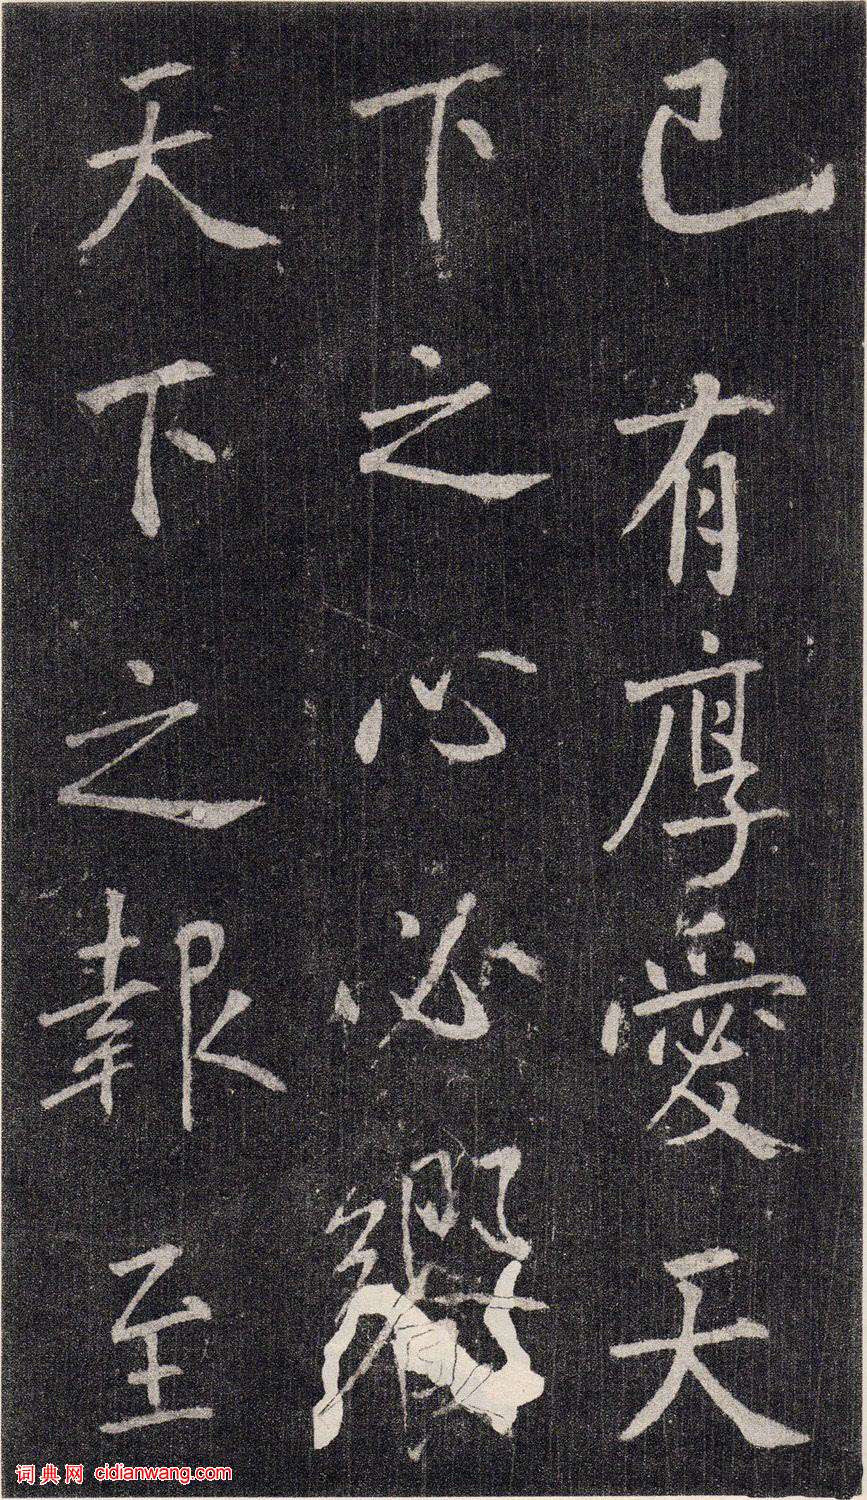 已有厚愛天
下之心必饗
天下之報至
词典网 cidianwang.com